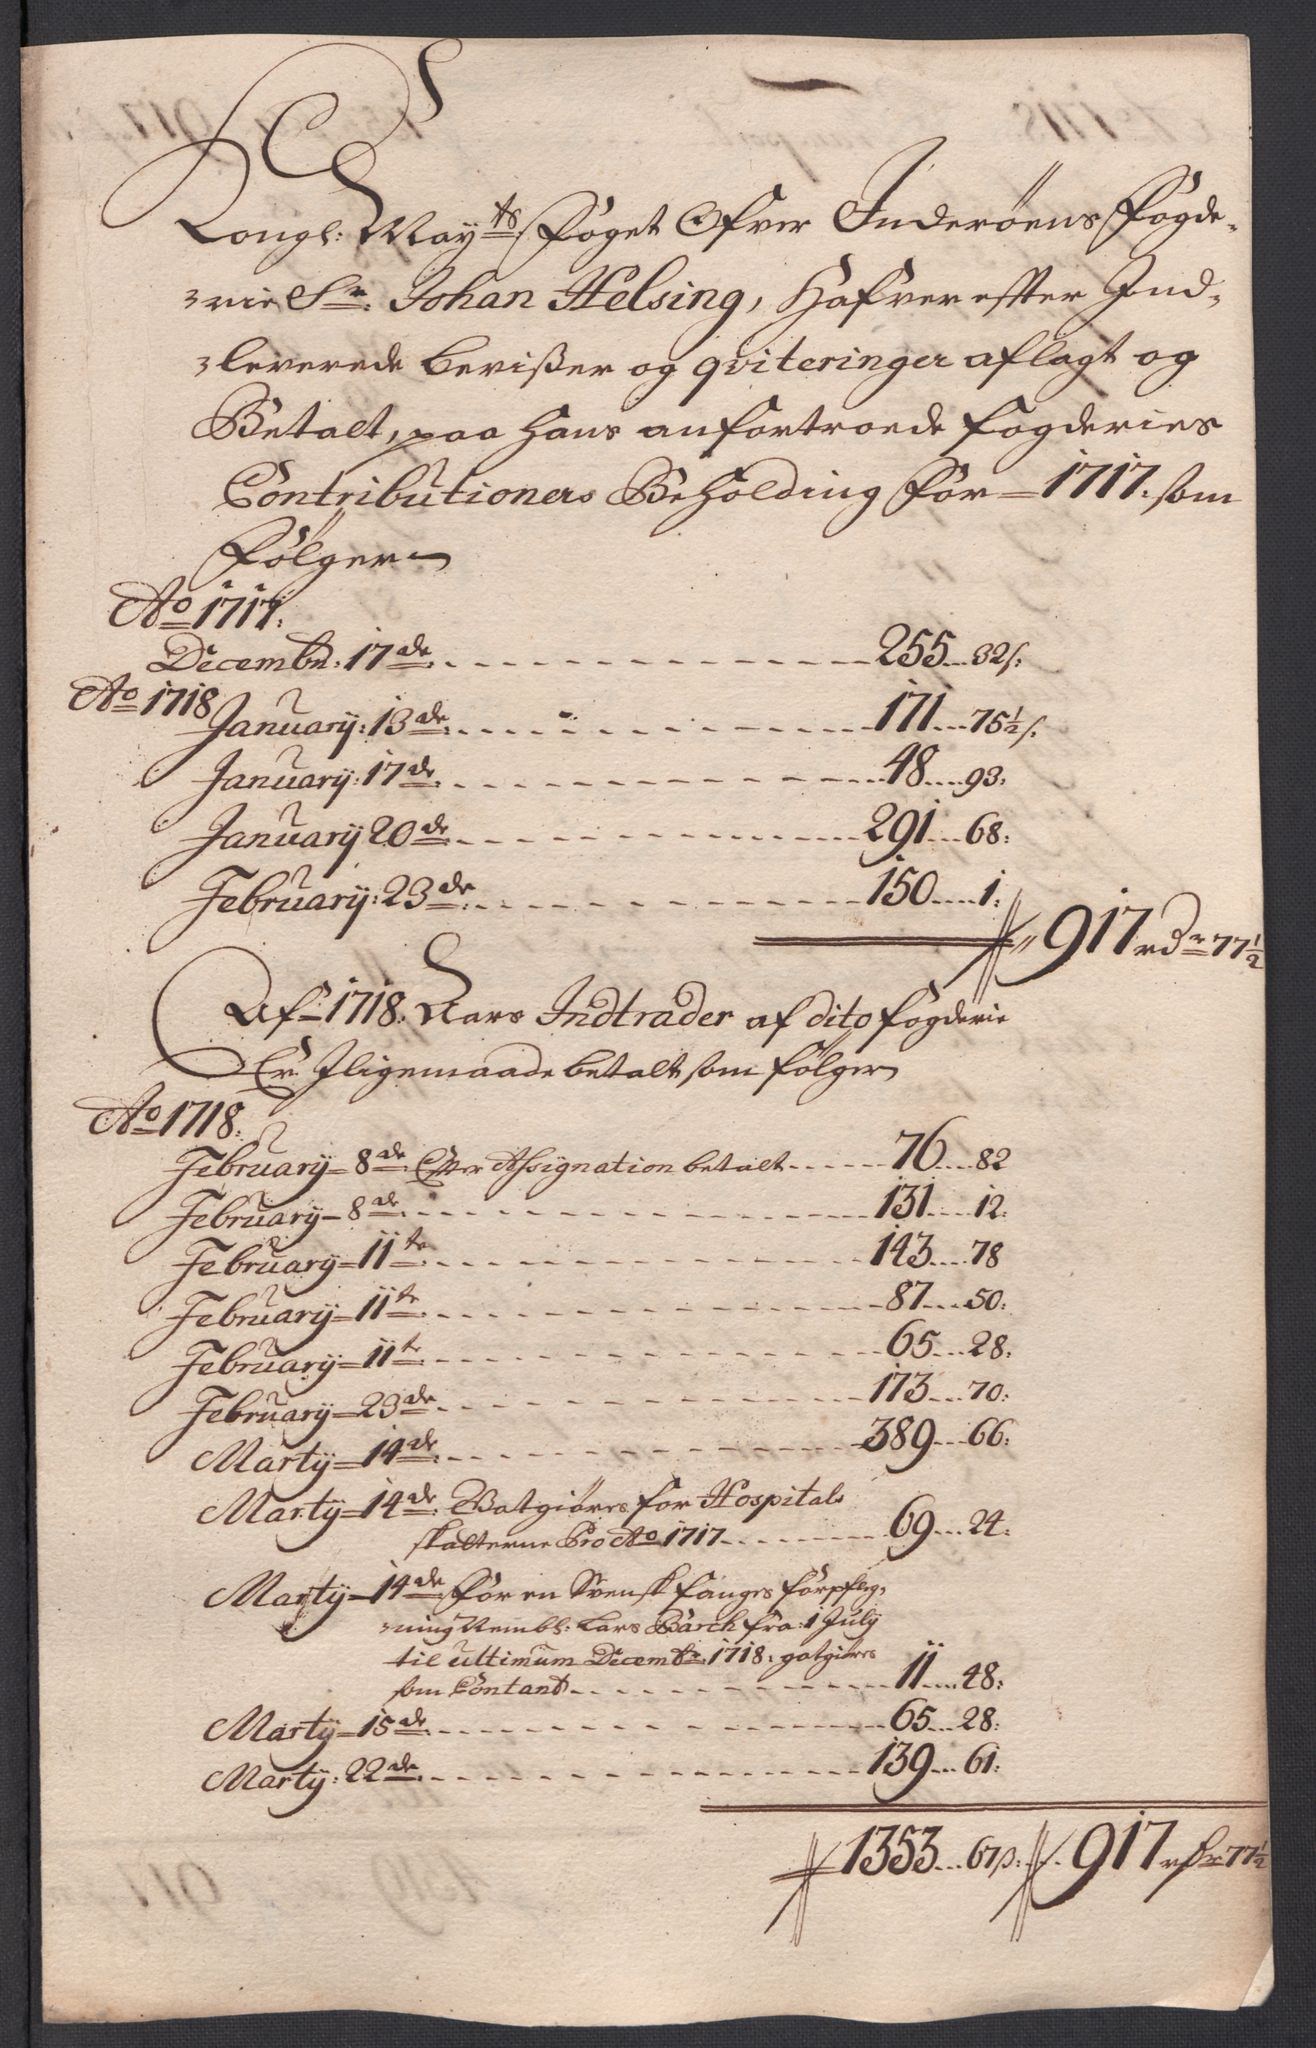 Kongl: May:ts Foget Ofver Inderöens Fogde-
-rie Sr. Johan Helsing, Hafver effter Ind-
-leverede bevißer og qviteringer aflagt og
Betalt, paa hans anfortroede fogderies
Contributioners Beholding for 1717. som
Fölger
Ao 1717.
Decembr: 17de 255 32s:
Ao 1718
January: 13de 171 75½s:
January: 17de 48 93:
January 20de 291 68:
February: 23de 150 1:
917 rdr 77½
Af 1718. Aars Indtrader af dito fogderie
Er Iligemaade betalt som fölger
Ao 1718.
February 8de Effter Assignation betalt 76 82
February 8de 131 12:
February 11te 143 78
February 11te 87 50:
February 11te 65 28:
February 23de 173 70:
Marty 14de 389 66:
Marty 14de Gotgiöres for Hospitals
skatterne Pro Ao 1717 69 24:
Marty 14de For en Svensk fanges forpfleg-
-ning Nembl: Lars Barch fra: 1 July
til ultimum Decembr: 1718: gotgiöres
som Contant 11 48:
Marty 15de 65 28:
Marty: 22de 139 61:
1353 67s: 917 rdr 77½